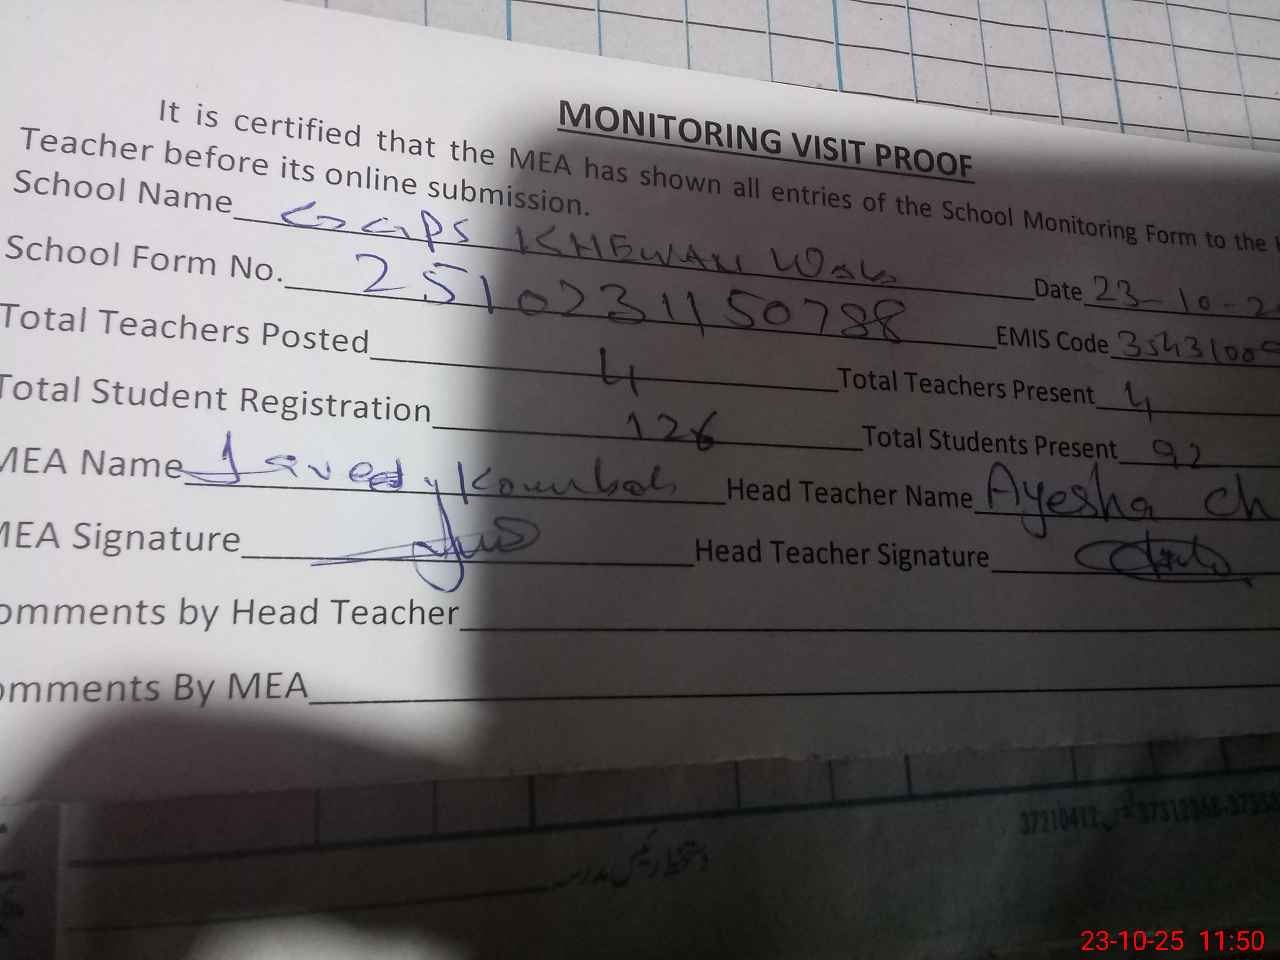 MONITORING VISIT PROOF
It is certified that the MEA has shown all entries of the School Monitoring Form to the
Teacher before its online submission.
School Name GGPS KHEWAN Wala Date 23-10-2
School Form No. 25102311 50788 EMIS Code 3543100
Total Teachers Posted 4 Total Teachers Present 4
Total Student Registration 126 Total Students Present 92
MEA Name Javed Head Teacher Name Ayesha Ch
MEA Signature Head Teacher Signature
omments by Head Teacher
omments By MEA
37210412
23-10-25 11:50